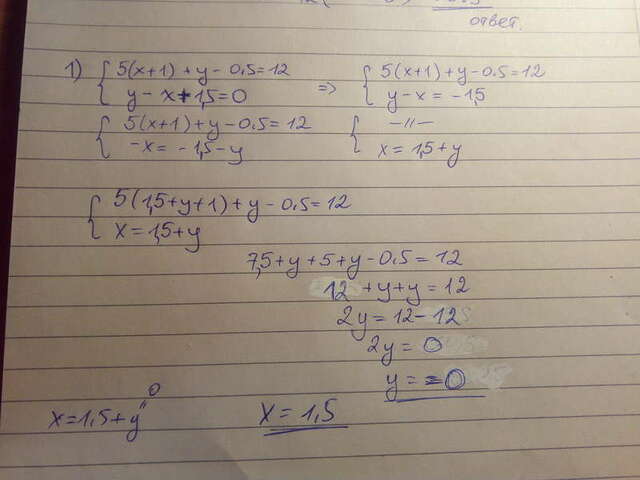 ответ.
1) { 5(x+1) + y - 0.5 = 12 => { 5(x+1) + y - 0.5 = 12
y - x + 1,5 = 0 y - x = -1,5
{ 5(x+1) + y - 0.5 = 12 { -11-
-x = -1,5 - y x = 1,5 + y
{ 5(1,5+y+1) + y - 0.5 = 12
x = 1,5 + y
7,5 + y + 5 + y - 0.5 = 12
12 + y + y = 12
2y = 12 - 12
2y = 0
y = 0
0
x = 1,5 + y" x = 1,5